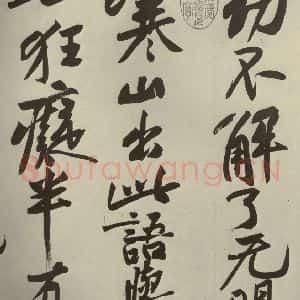 切不解了无明
寒山出此語
狂癡半有
Shufawang.CN